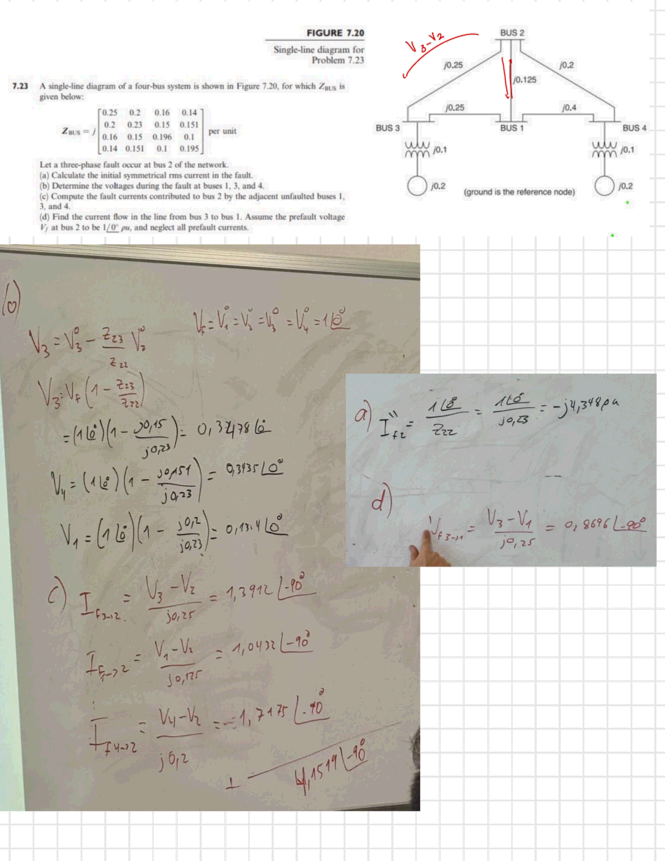 FIGURE 7.20
Single-line diagram for
Problem 7.23
7.23 A single-line diagram of a four-bus system is shown in Figure 7.20, for which Z_BUS is
given below:
Z_BUS = j
0.25 0.2 0.16 0.14
0.2 0.23 0.15 0.151
0.16 0.15 0.196 0.1
0.14 0.151 0.1 0.195
per unit
Let a three-phase fault occur at bus 2 of the network.
(a) Calculate the initial symmetrical rms current in the fault.
(b) Determine the voltages during the fault at buses 1, 3, and 4.
(c) Compute the fault currents contributed to bus 2 by the adjacent unfaulted buses 1,
3, and 4.
(d) Find the current flow in the line from bus 3 to bus 1. Assume the prefault voltage
V_f at bus 2 to be 1/0° pu, and neglect all prefault currents.
V3-V2
BUS 2
j0.25
j0.2
j0.125
j0.25
j0.4
BUS 3
BUS 1
BUS 4
j0.1
j0.1
j0.2
j0.2
(ground is the reference node)
b)
V_f = V_1° = V_2° = V_3° = V_4° = 1∠0°
V_3 = V_3° - Z_23/Z_22 V_2°
V_3 = V_f (1 - Z_23/Z_22)
= (1∠0°)(1 - j0,15/j0,23) = 0,3478∠0°
V_4 = (1∠0°)(1 - j0,151/j0,23) = 0,3435∠0°
V_1 = (1∠0°)(1 - j0,2/j0,23) = 0,1304∠0°
a) I''_f2 = 1∠0°/Z_22 = 1∠0°/j0,23 = -j4,348 pu
d)
V_3-V_1/j0,25 = 0,8696∠-90°
c) I_f3→2 = V_3-V_2/j0,25 = 1,3912∠-90°
V_1-V_2/j0,125 = 1,0432∠-90°
I_f4→2 = V_4-V_2/j0,2 = 1,7175∠-90°
+
4,1519∠-90°